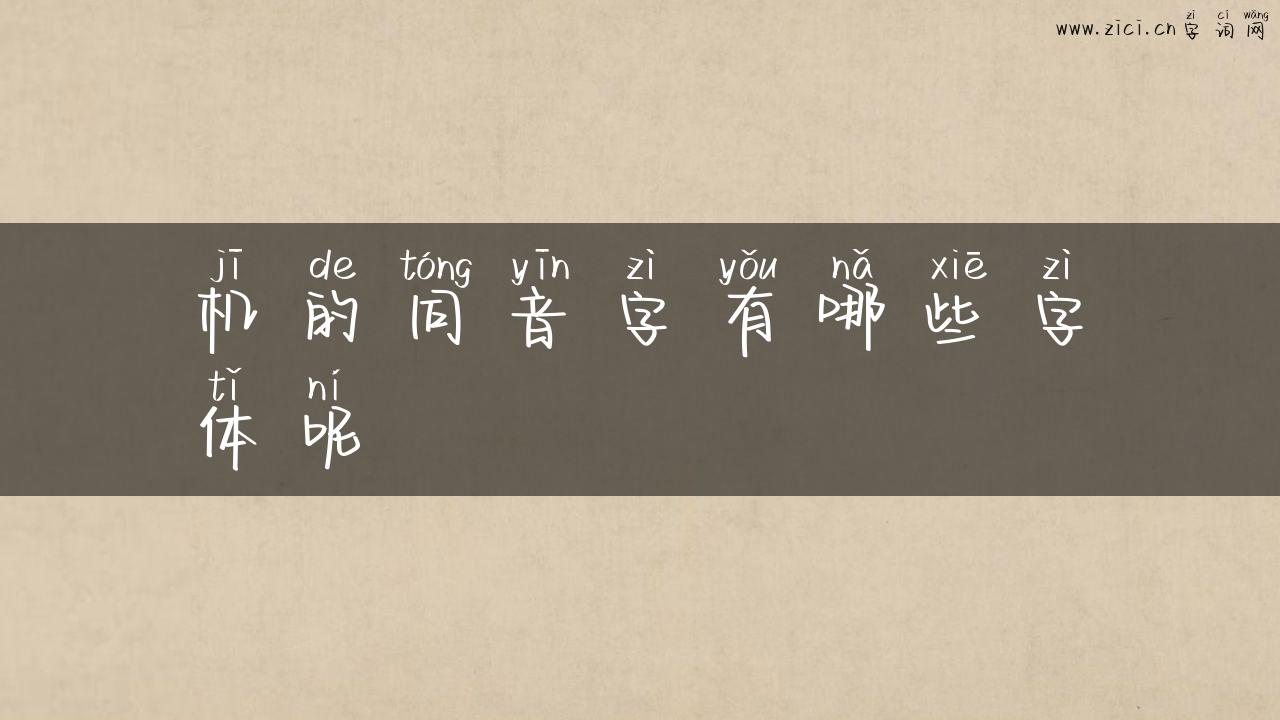 zì cí wǎng
www.zici.cn 字词网
jī de tóng yīn zì yǒu nǎ xiē zì
机的同音字有哪些字
tǐ ní
体呢